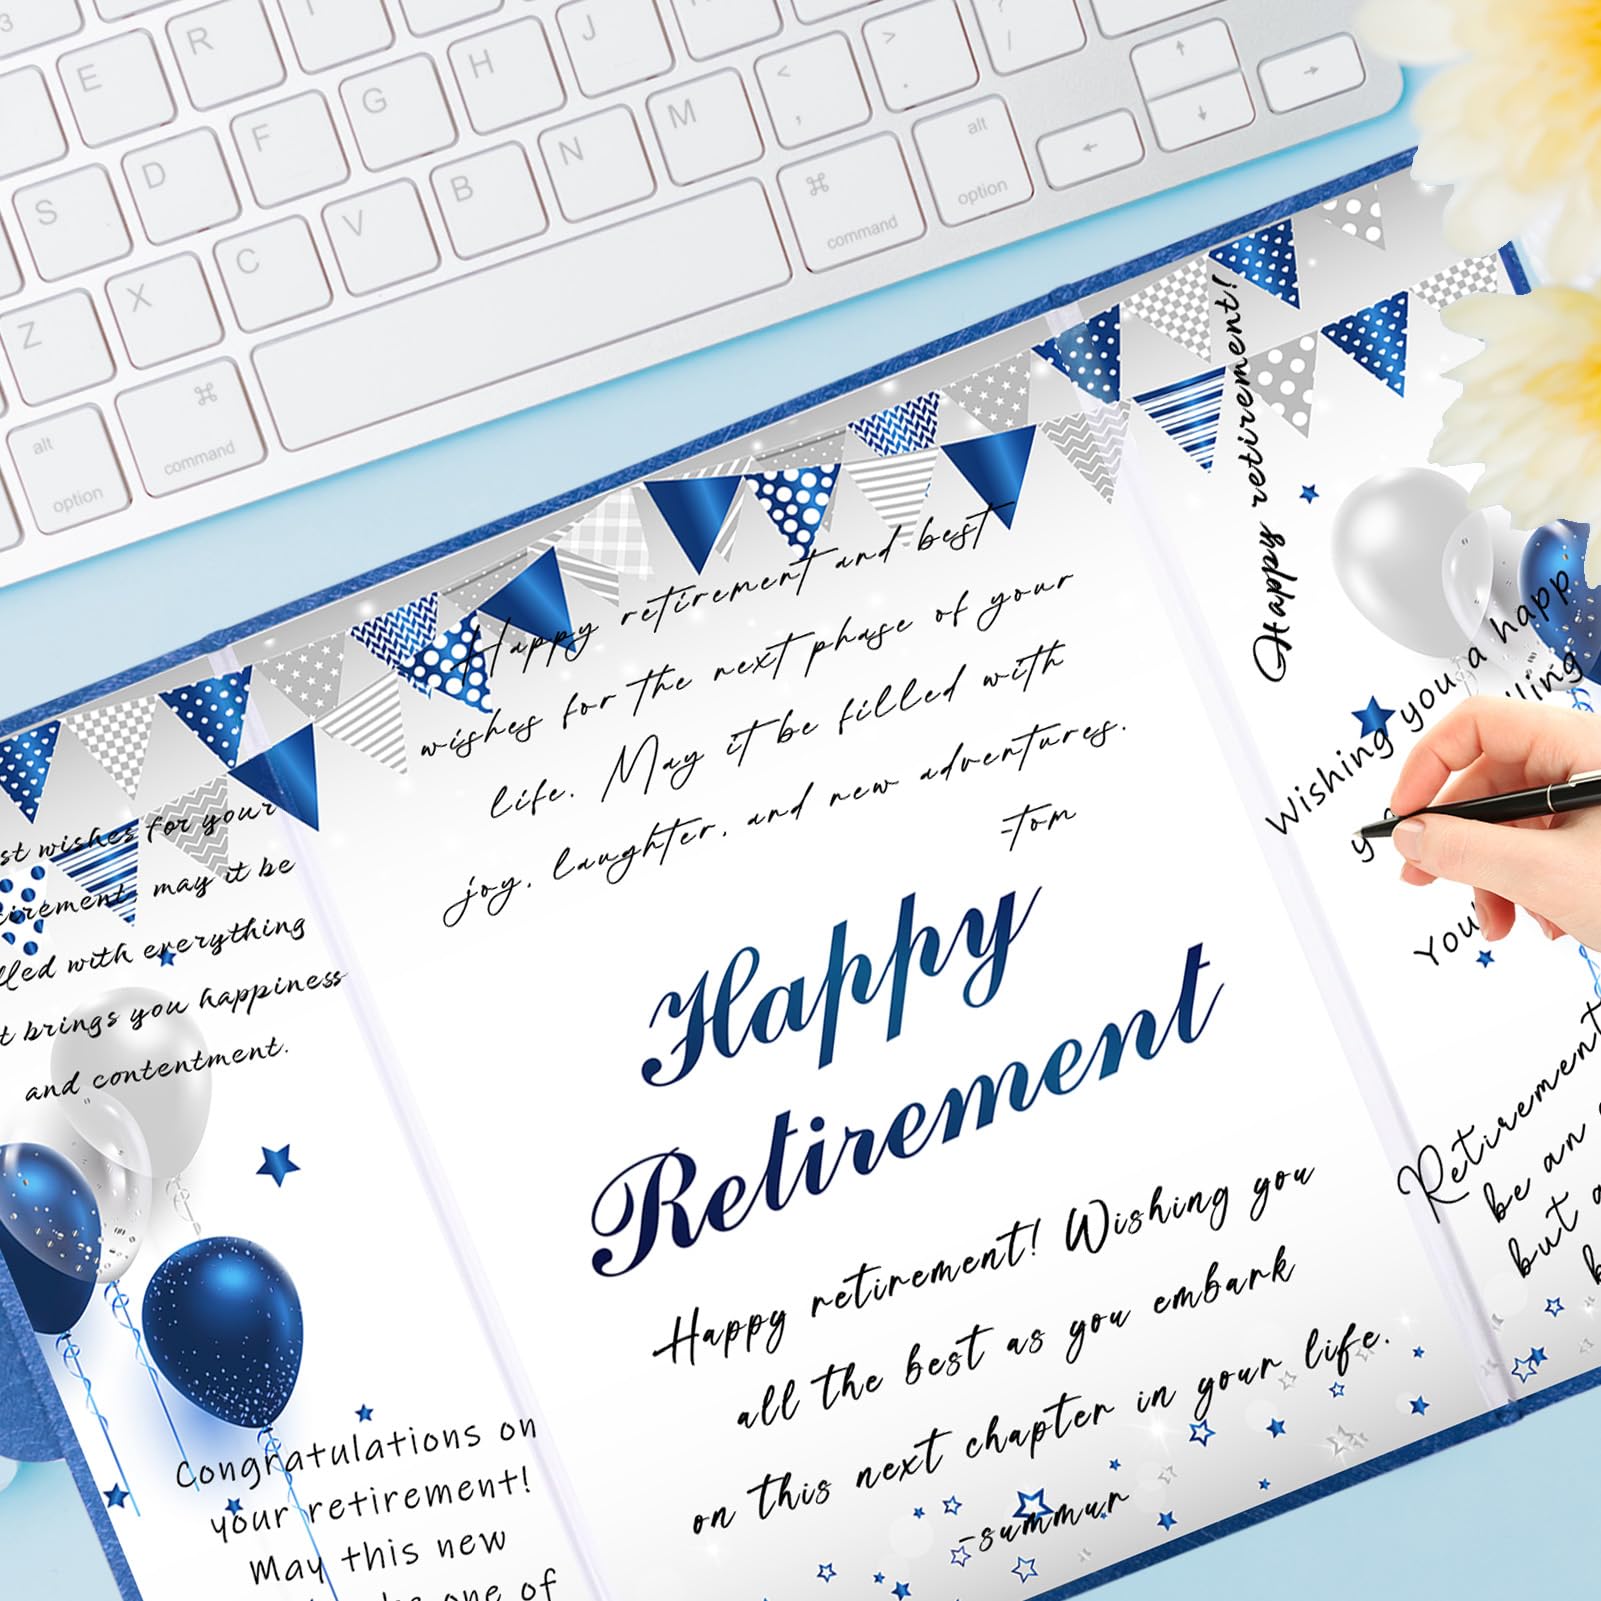 3
E
R
T
Y
U
I
S
D
F
G
H
J
Z
X
C
V
B
N
M
<
,
>
.
?
/
alt
option
⌘
command
⌘
command
alt
option
Happy retirement and best
wishes for the next phase of your
life. May it be filled with
joy, laughter, and new adventures.
-Tom
Happy
Retirement
Happy retirement! Wishing you
all the best as you embark
on this next chapter in your life.
-summur
wishes for your
may it be
with everything
brings you happiness
and contentment.
Congratulations on
your retirement!
May this new
one of
Happy retirement!
Wishing you a
Retirement
be an
but